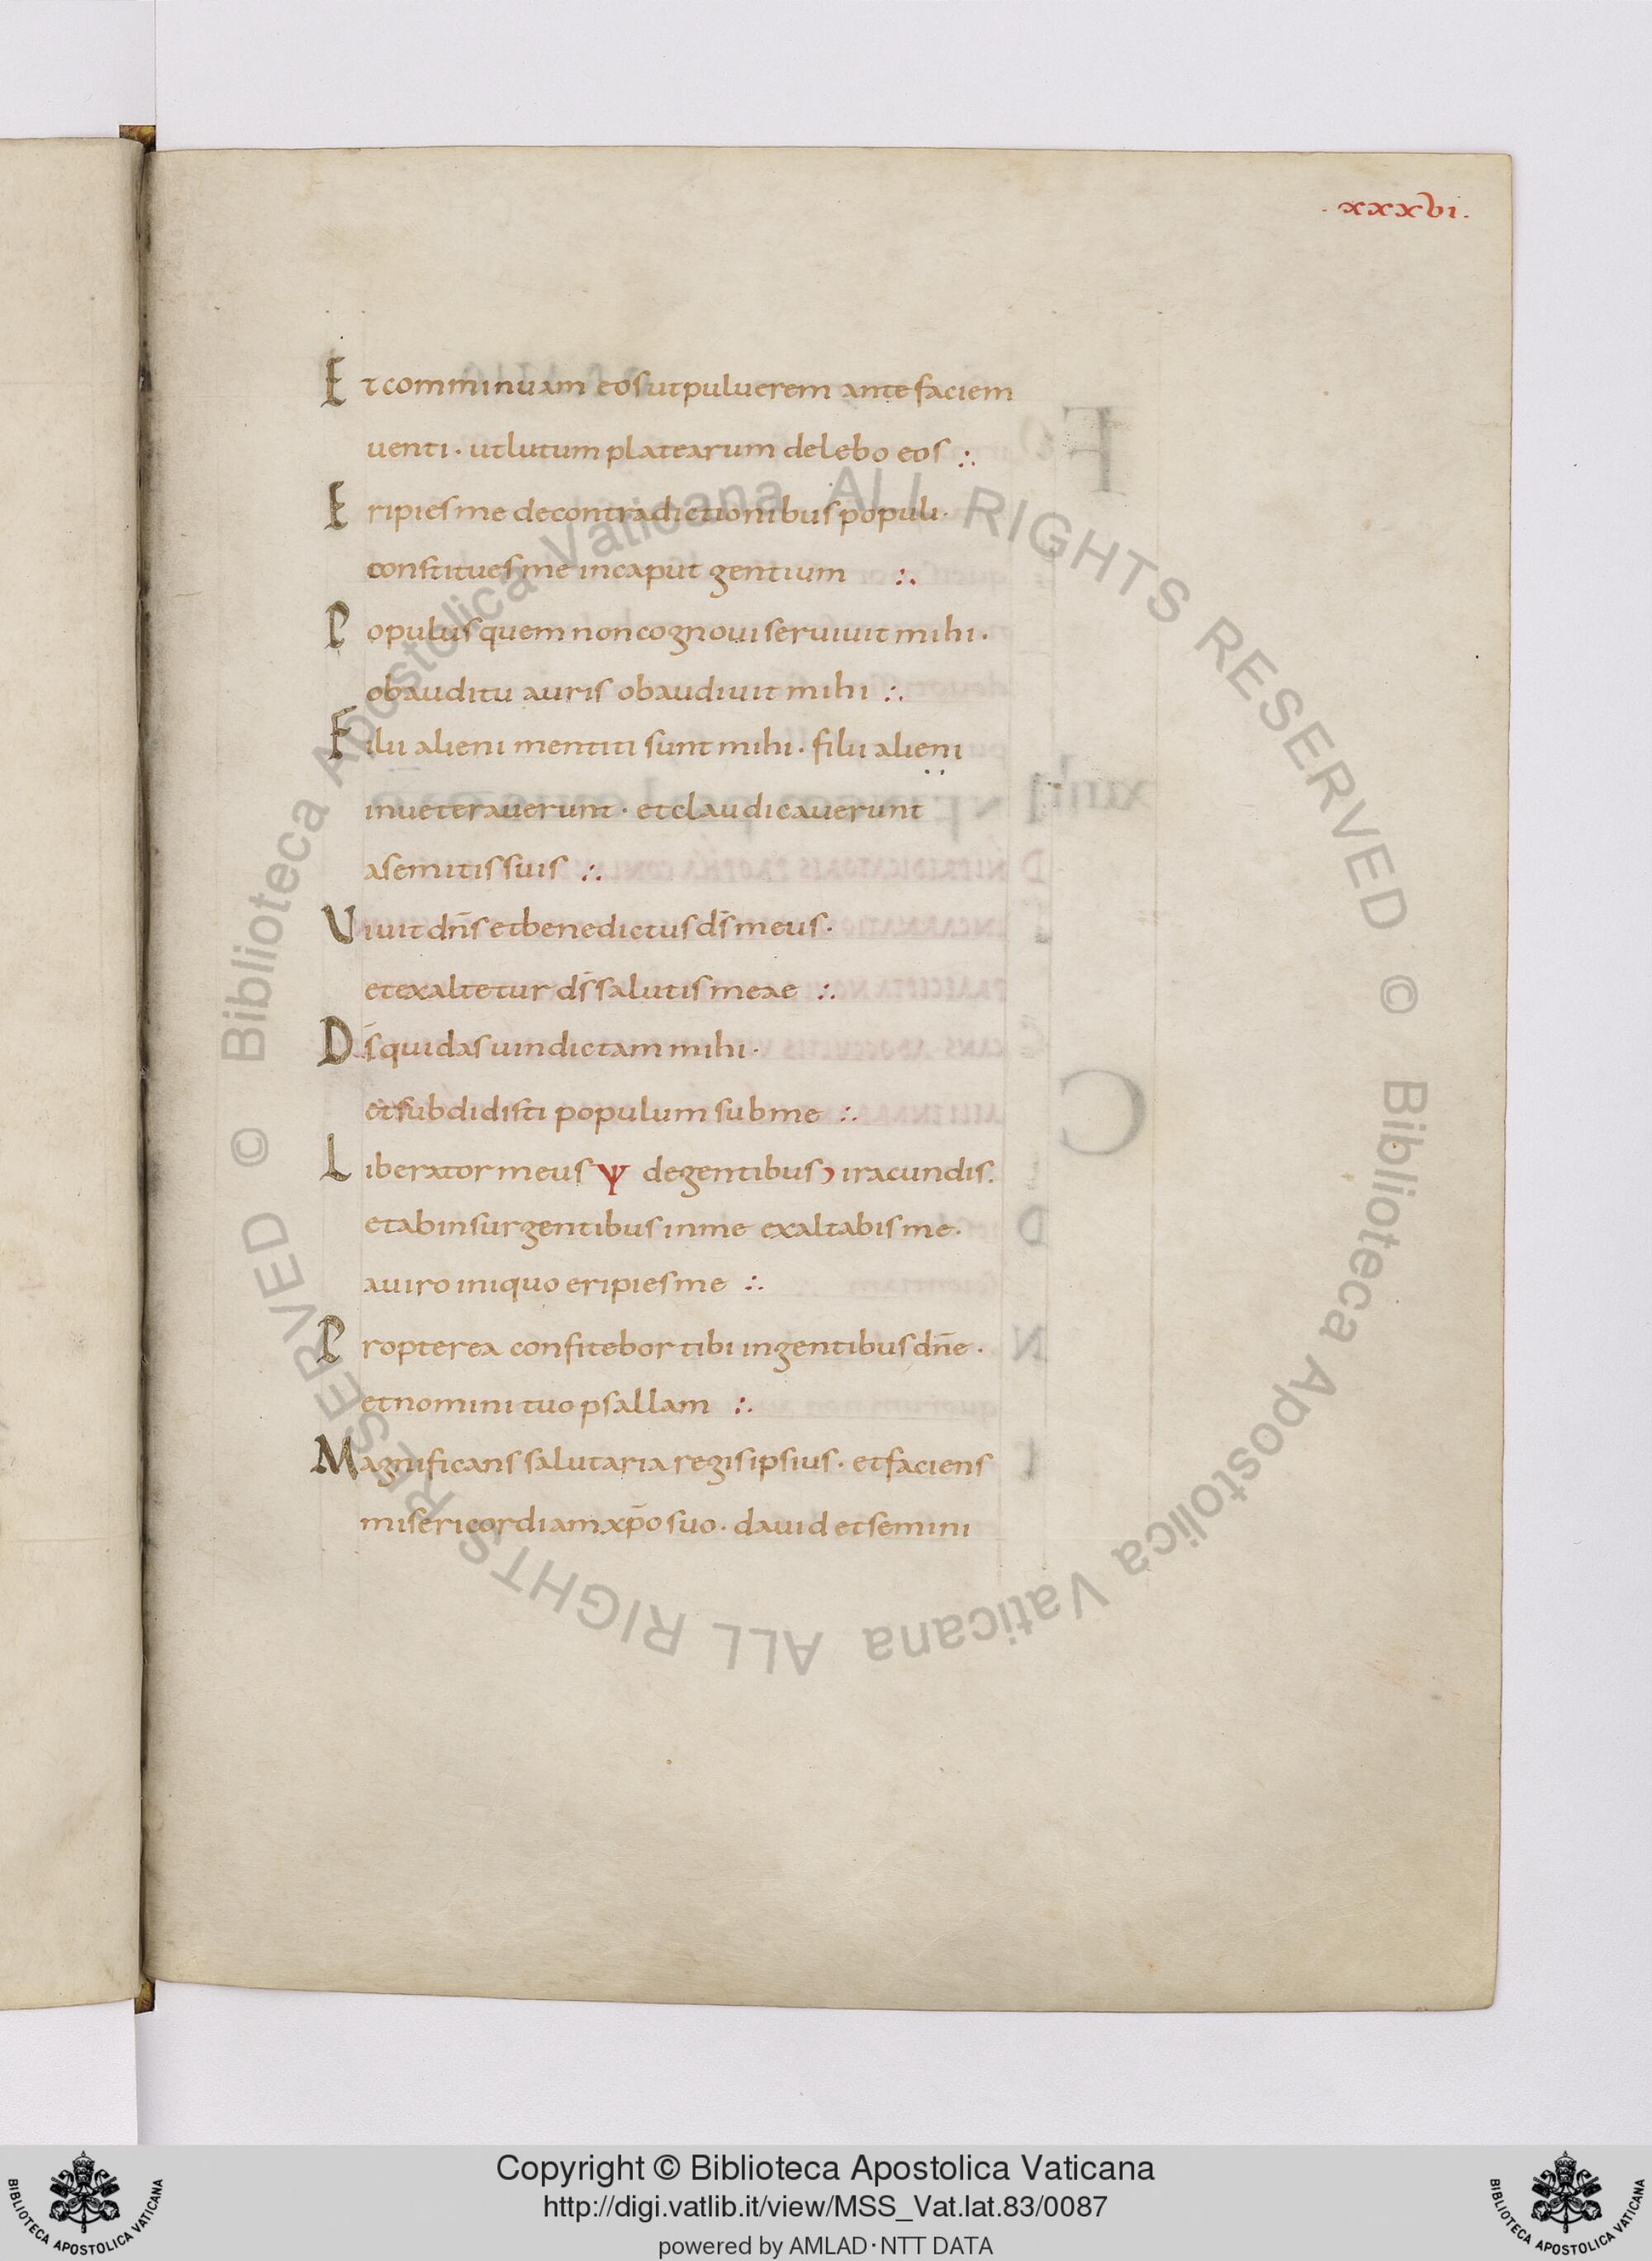 · xxxvi ·
Et comminuam eos ut puluerem ante faciem
uenti · ut lutum platearum delebo eos ∴
Eripies me de contradictionibus populi ·
constitues me in caput gentium ∴
Populus quem non cognoui seruiuit mihi ·
obauditu auris obaudiuit mihi ∴
Filii alieni mentiti sunt mihi · filii alieni
inueterauerunt · et claudicauerunt
a semitis suis ∴
Uiuit dn̄s et benedictus ds̄ meus ·
et exaltetur ds̄ salutis meae ∴
Ds̄ qui das uindictam mihi ·
et subdidisti populum sub me ∴
Liberator meus Ψ de gentibus iracundis ·
et ab insurgentibus in me exaltabis me ·
a uiro iniquo eripies me ∴
Propterea confitebor tibi in gentibus dn̄e ·
et nomini tuo psallam ∴
Magnificans salutaria regis ipsius · et faciens
misericordiam xp̄o suo · dauid et semini
© Biblioteca Apostolica Vaticana ALL RIGHTS RESERVED
© Biblioteca Apostolica Vaticana ALL RIGHTS RESERVED
Copyright © Biblioteca Apostolica Vaticana
http://digi.vatlib.it/view/MSS_Vat.lat.83/0087
powered by AMLAD·NTT DATA
BIBLIOTECA APOSTOLICA VATICANA
BIBLIOTECA APOSTOLICA VATICANA